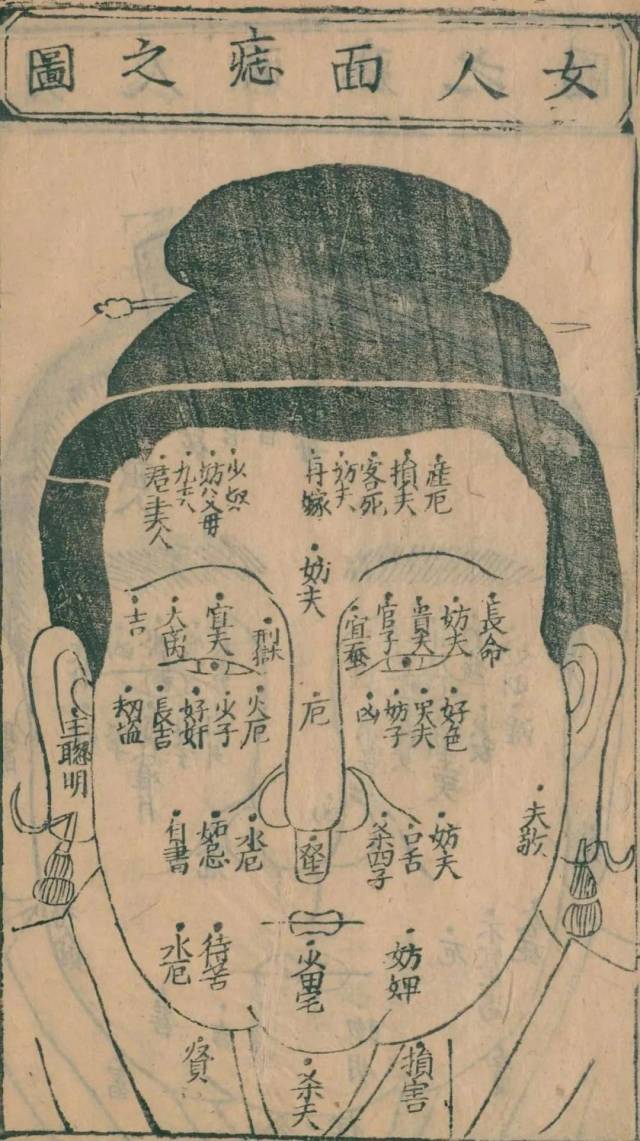 女人面痣之圖
產厄
損夫
客死
妨夫
再嫁
少奴
妨父母
九夫
君主夫人
妨夫
長命
妨夫
貴夫
官子
宜蚕
刑獄
宜夫
大萬
吉
好色
哭夫
妨子
凶
厄
火厄
少子
好奸
長吉
主聰明
夫敬
妨夫
口舌
杀四子
水厄
妬忌
自害
妨婢
少田宅
待苦
水厄
損害
杀夫